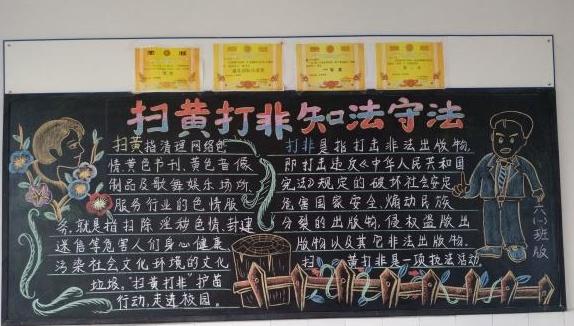 扫黄打非知法守法
扫黄指清理网络色
情、黄色书刊、黄色音像
制品及歌舞娱乐场所、
服务行业的色情服
务，就是指扫除淫秽色情、封建
迷信等危害人们身心健康、
污染社会文化环境的文化
垃圾，“扫黄打非”护苗
行动，走进校园。
打非是指打击非法出版物，
即打击违反《中华人民共和国
宪法》规定的破坏社会安定、
危害国家安全、煽动民族
分裂的出版物，侵权盗版出
版物以及其它非法出版物。
扫 黄打非是一项执法活动
班版